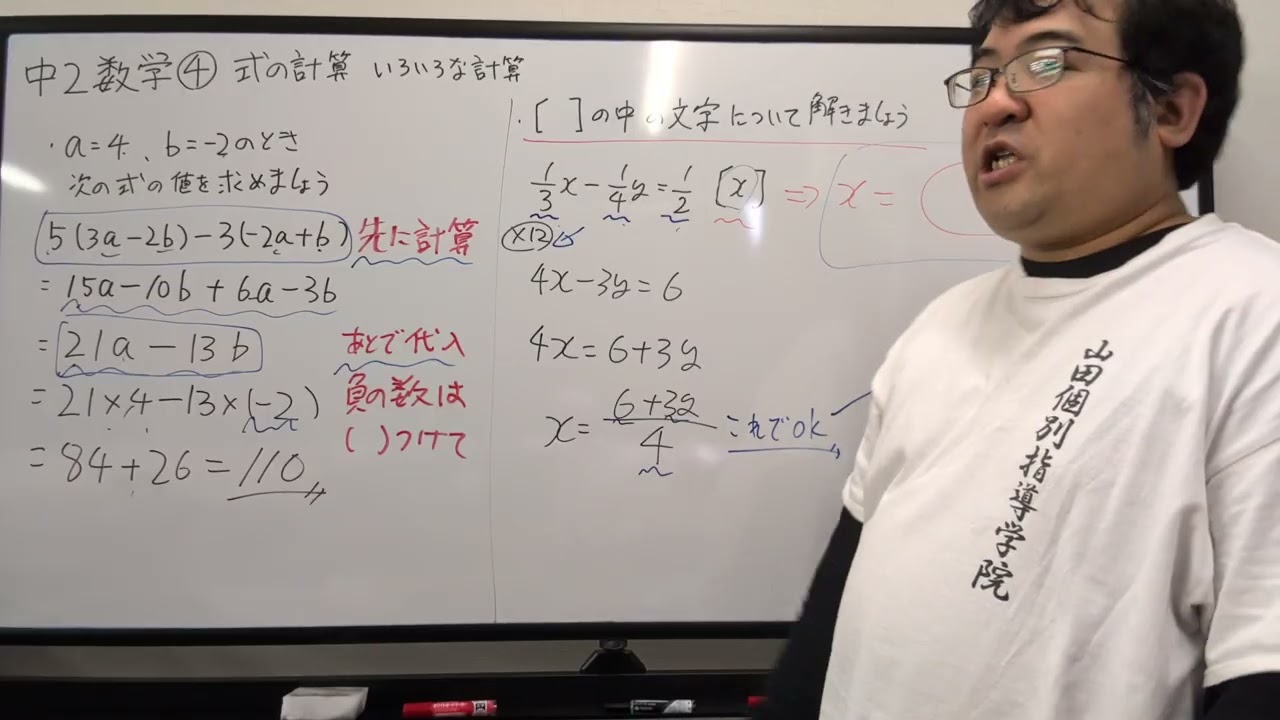 中2数学④ 式の計算 いろいろな計算
・a=4、b=-2のとき
次の式の値を求めましょう
5(3a-2b)-3(-2a+b) 先に計算
=15a-10b+6a-3b
=21a-13b あとで代入
=21×4-13×(-2) 負の数は
=84+26=110 ( )つけて
・[ ]の中の文字について解きましょう
1/3x-1/4y=1/2 [x] ⇒ x=
×12
4x-3y=6
4x=6+3y
x=(6+3y)/4 これでok
山田個別指導学院